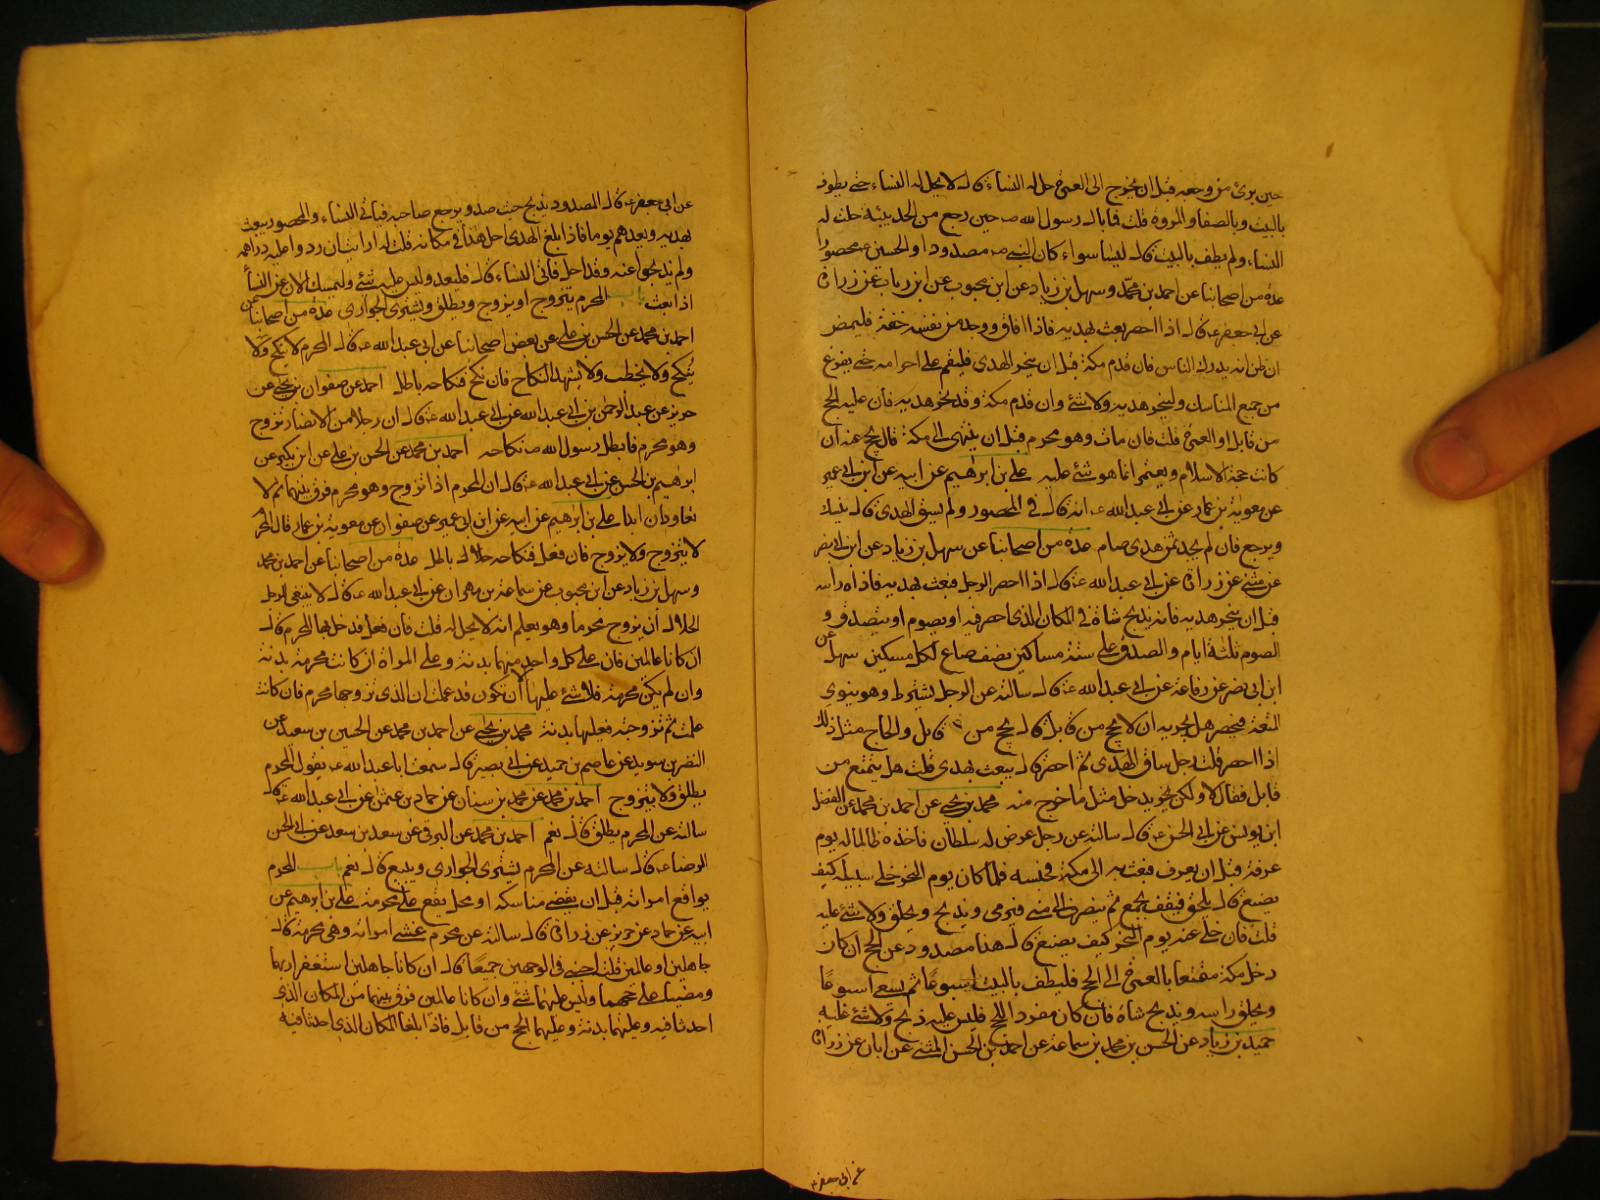 حين برئ من وجعه قبل ان يخرج الى العمرة حل له النساء قال لا يحل له النساء حتى يطوف
بالبيت وبالصفا والمروة قلت فما بال رسول الله ص حين رجع من الحديبية حلت له
النساء ولم يطف بالبيت قال ليسا سواء كان النبي ص مصدودا والحسين ع محصورا
عدة من اصحابنا عن احمد بن محمد وسهل بن زياد عن ابن محبوب عن ابن رياب عن زرارة
عن ابى جعفر ع قال اذا احصر بعث بهديه فاذا افاق ووجد من نفسه خفة فليمض
ان ظن انه يدرك الناس فان قدم مكة قبل ان ينحر الهدى فليقم على احرامه حتى يفرغ
من جميع المناسك ولينحر هديه ولا شئ وان قدم مكة وقد نحر هديه فان عليه الحج
من قابل او العمرة قلت فان مات وهو محرم قبل ان ينتهى الى مكة قال يحج عنه ان
كانت حجة الاسلام ويعتمر انما هو شئ عليه على بن ابرهيم عن ابيه عن ابن ابى عمير
عن معوية بن عمار عن ابى عبد الله ع انه قال فى المحصور ولم يسق الهدى قال ينسك
ويرجع فان لم يجد ثمن هدى صام عدة من اصحابنا عن سهل بن زياد عن ابن ابى نصر
عن مثنى عن زرارة عن ابى عبد الله ع قال اذا احصر الرجل فبعث بهديه فاذاه راسه
قبل ان ينحر هديه فانه يذبح شاة فى المكان الذى احصر فيه او يصوم او يتصدق و
الصوم ثلثة ايام والصدقة على ستة مساكين نصف صاع لكل مسكين سهل عن
ابن ابى نصر عن رفاعة عن ابى عبد الله ع قال سالته عن الرجل يشترط وهو ينوى
المتعة فيحصر هل يجزيه ان لا يحج من قابل قال يحج من قابل والحاج مثل ذلك
اذا احصر قلت رجل ساق الهدى ثم احصر قال يبعث بهديه قلت هل يتمتع من
قابل فقال لا ولكن يدخل مثل ما خرج منه محمد بن يحيى عن احمد بن محمد عن الفضل
ابن يونس عن ابى الحسن ع قال سالته عن رجل عرض له سلطان فاخذه ظالما له يوم
عرفة قبل ان يعرف فبعث به الى مكة فحبسه فلما كان يوم النحر خلى سبيله كيف
يصنع قال يلحق فيقف بجمع ثم ينصرف الى منى فيرمى ويذبح ويحلق ولا شئ عليه
قلت فان خلى عنه يوم النحر كيف يصنع قال هذا مصدود عن الحج ان كان
دخل مكة متمتعا بالعمرة الى الحج فليطف بالبيت اسبوعا ثم يسعى اسبوعا
ويحلق راسه ويذبح شاة فان كان مفرد الحج فليس عليه ذبح ولا شئ عليه
حميد بن زياد عن الحسن بن محمد بن سماعة عن احمد بن الحسن المثنى عن ابان عن زرارة
عن ابى جعفر ع
عن ابى جعفر ع قال المصدود يذبح حيث صد ويرجع صاحبه فياتى النساء والمحصور يبعث
بهديه ويعدهم يوما فاذا بلغ الهدى احل هذا فى مكانه قلت له ارايت ان ردوا عليه دراهمه
ولم يذبحوا عنه وقد احل فاتى النساء قال فليعد وليس عليه شئ وليمسك الان عن النساء
اذا بعث باب المحرم يتزوج او يزوج ويطلق ويشترى الجوارى عدة من اصحابنا عن
احمد بن محمد عن الحسن بن على عن بعض اصحابنا عن ابى عبد الله ع قال المحرم لا ينكح ولا
ينكح ولا يخطب ولا يشهد النكاح فان نكح فنكاحه باطل احمد عن صفوان بن يحيى عن
حريز عن عبد الرحمن بن ابى عبد الله عن ابى عبد الله ع قال ان رجلا من الانصار تزوج
وهو محرم فابطل رسول الله ص نكاحه احمد بن محمد عن الحسن بن على عن ابن بكير عن
ابرهيم بن الحسن عن ابى عبد الله ع قال ان المحرم اذا تزوج وهو محرم فرق بينهما ثم لا
يتعاودان ابدا على بن ابرهيم عن ابيه عن ابن ابى عمير عن صفوان عن معوية بن عمار قال المحرم
لا يتزوج ولا يزوج فان فعل فنكاحه باطل عدة من اصحابنا عن احمد بن محمد
وسهل بن زياد عن ابن محبوب عن سماعة بن مهران عن ابى عبد الله ع قال لا ينبغى للرجل
الحلال ان يزوج محرما وهو يعلم انه لا يحل له قلت فان فعل فدخل بها المحرم قال
ان كانا عالمين فان على كل واحد منهما بدنة وعلى المراة ان كانت محرمة بدنة
وان لم يكن محرمة فلا شئ عليها الا ان تكون قد علمت ان الذى تزوجها محرم فان كانت
علمت ثم تزوجته فعليها بدنة محمد بن يحيى عن احمد بن محمد عن الحسين بن سعيد عن
النضر بن سويد عن عاصم بن حميد عن ابى بصير قال سمعت ابا عبد الله ع يقول المحرم
يطلق ولا يتزوج احمد بن محمد عن محمد بن سنان عن حماد بن عثمن عن ابى عبد الله ع قال
سالته عن المحرم يطلق قال نعم احمد بن محمد عن البرقى عن سعد بن سعد عن ابى الحسن
الرضا ع قال سالته عن المحرم يشترى الجوارى ويبيع قال نعم باب المحرم
يواقع امراته قبل ان يقضى مناسكه او محل يقع على محرمة على بن ابرهيم عن
ابيه عن حماد عن حريز عن زرارة قال سالته عن محرم غشى امراته وهى محرمة قال
جاهلين او عالمين قلت اجبنى فى الوجهين جميعا قال ان كانا جاهلين استغفرا ربهما
ومضيا على حجهما وليس عليهما شئ وان كانا عالمين فرق بينهما من المكان الذى
احدثا فيه وعليهما بدنة وعليهما الحج من قابل فاذا بلغا المكان الذى احدثا فيه